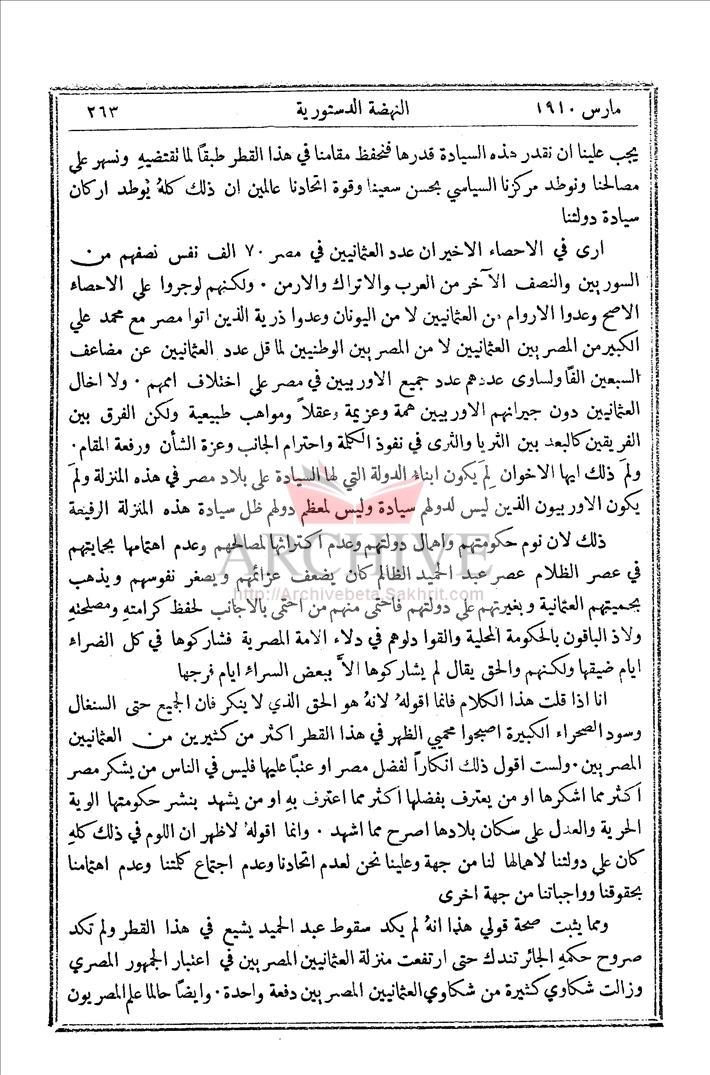 مارس ١٩١٠ النهضة الدستورية ٢٦٣
يجب علينا ان نقدر هذه السيادة قدرها فنحفظ مقامنا في هذا القطر طبقًا لما تقتضيهِ ونسهر على
مصالحنا ونوطد مركزنا السياسي بحسن سعينا وقوة اتحادنا عالمين ان ذلك كلهُ يُوطد اركان
سيادة دولتنا
ارى في الاحصاء الاخير ان عدد العثمانيين في مصر ٧٠ الف نفس نصفهم من
السوريين والنصف الآخر من العرب والاتراك والارمن . ولكنهم لو جروا على الاحصاء
الاصح وعدوا الاروام من العثمانيين لا من اليونان وعدوا ذرية الذين اتوا مصر مع محمد علي
الكبير من المصريين العثمانيين لا من المصريين الوطنيين لما قل عدد العثمانيين عن مضاعف
السبعين الفًا ولساوى عددهم عدد جميع الاوربيين في مصر على اختلاف اممهم . ولا اخال
العثمانيين دون جيرانهم الاوربيين همة وعزيمة وعقلاً ومواهب طبيعية ولكن الفرق بين
الفريقين كالبعد بين الثريا والثرى في نفوذ الكلمة واحترام الجانب وعزة الشأن ورفعة المقام.
ولمَ ذلك ايها الاخوان لمَ يكون ابناء الدولة التي لها السيادة على بلاد مصر في هذه المنزلة ولمَ
يكون الاوربيون الذين ليس لدولهم سيادة وليس لمعظم دولهم ظل سيادة هذه المنزلة الرفيعة
ذلك لان نوم حكومتهم واهمال دولتهم وعدم اكتراثها لمصالحهم وعدم اهتمامها بحمايتهم
في عصر الظلام عصر عبد الحميد الظالم كان يضعف عزائمهم ويصغر نفوسهم ويذهب
بحميتهم العثمانية وبغيرتهم على دولتهم فاحتمى منهم من احتمى بالاجانب لحفظ كرامتهِ ومصلحتهِ
ولاذ الباقون بالحكومة المحلية والقوا دلوهم في دلاء الامة المصرية فشاركوها في كل الضراء
ايام ضيقها ولكنهم والحق يقال لم يشاركوها الاَّ ببعض السراء ايام فرجها
انا اذا قلت هذا الكلام فانما اقولهُ لانهُ هو الحق الذي لا ينكر فان الجميع حتى السنغال
وسود الصحراء الكبيرة اصبحوا محميي الظهر في هذا القطر اكثر من كثيرين من العثمانيين
المصريين . ولست اقول ذلك انكاراً لفضل مصر او عتبًا عليها فليس في الناس من يشكر مصر
اكثر مما اشكرها او من يعترف بفضلها اكثر مما اعترف بهِ او من يشهد بنشر حكومتها الوية
الحرية والعدل على سكان بلادها اصرح مما اشهد . وانما اقولهُ لاظهر ان اللوم في ذلك كلهِ
كان على دولتنا لاهمالها لنا من جهة وعلينا نحن لعدم اتحادنا وعدم اجتماع كلمتنا وعدم اهتمامنا
بحقوقنا وواجباتنا من جهة اخرى
ومما يثبت صحة قولي هذا انهُ لم يكد سقوط عبد الحميد يشيع في هذا القطر ولم تكد
صروح حكمهِ الجائر تندك حتى ارتفعت منزلة العثمانيين المصريين في اعتبار الجمهور المصري
وزالت شكاوي كثيرة من شكاوي العثمانيين المصريين دفعة واحدة . وايضًا حالما علم المصريون
ARCHIVE
http://Archivebeta.Sakhrit.com